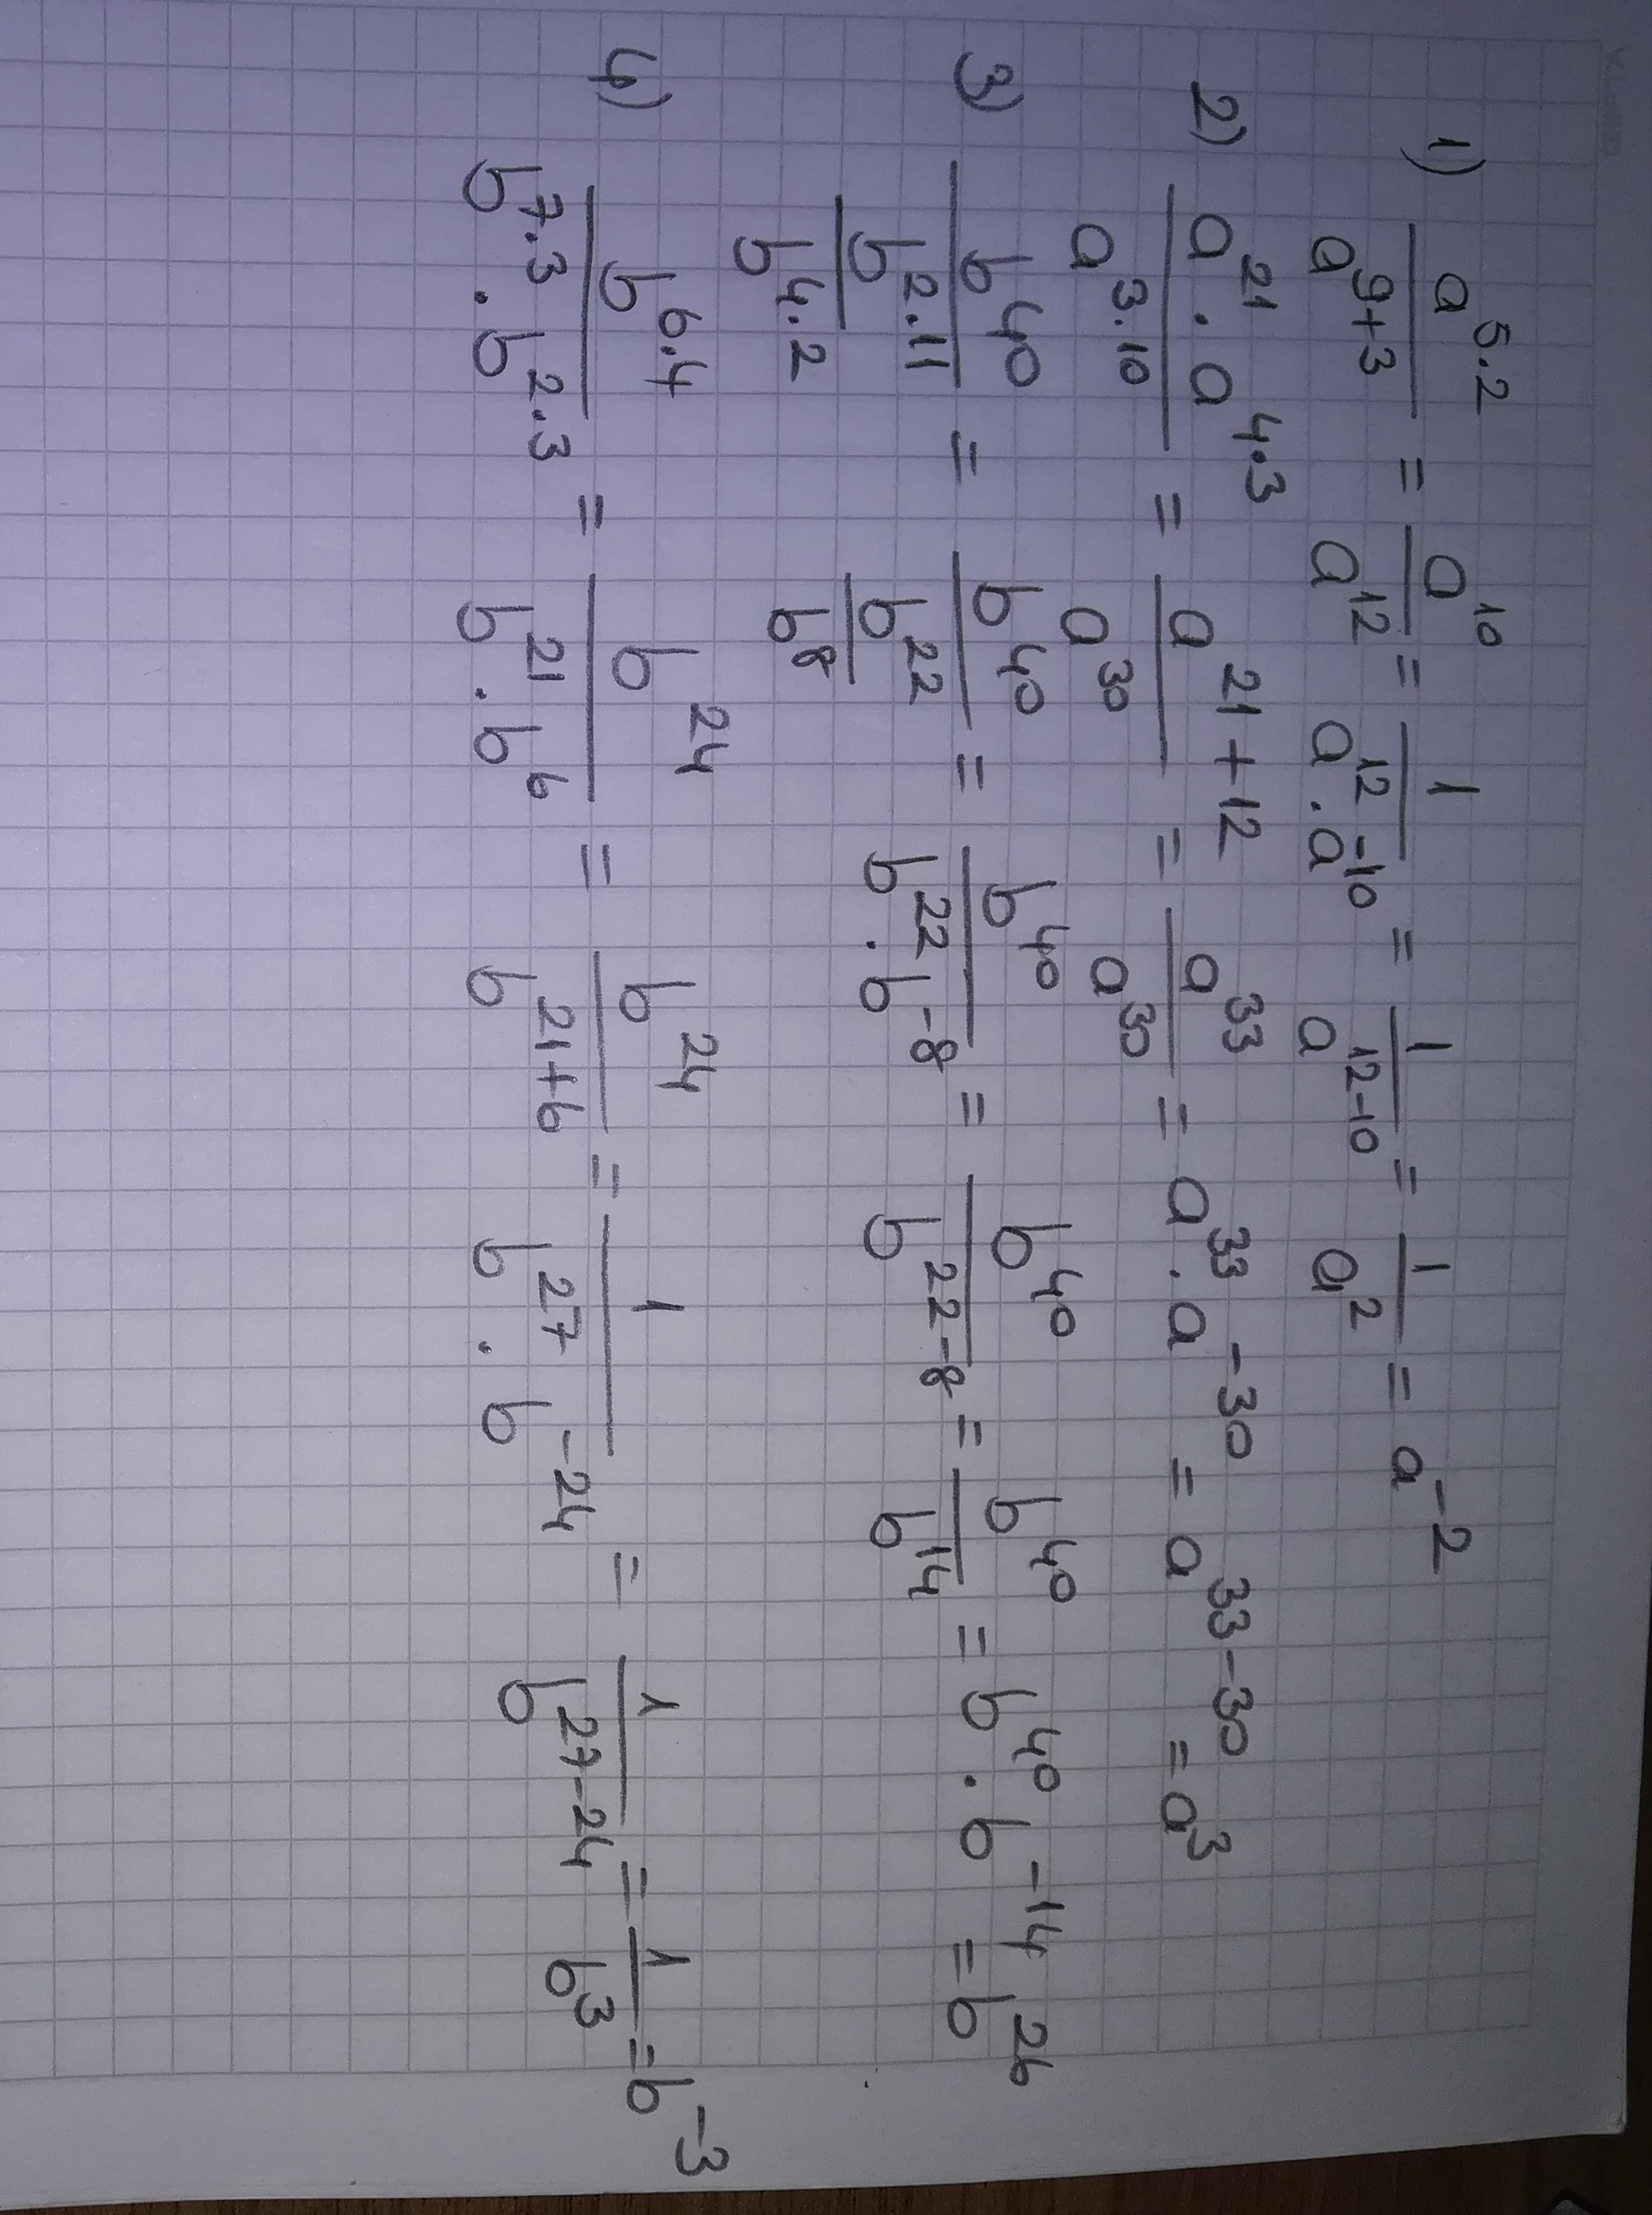 1) a^{5·2} / a^{9+3} = a^{10} / a^{12} = 1 / (a^{12} · a^{-10}) = 1 / a^{12-10} = 1 / a^2 = a^{-2}
2) (a^{21} · a^{4·3}) / a^{3·10} = a^{21+12} / a^{30} = a^{33} / a^{30} = a^{33} · a^{-30} = a^{33-30} = a^3
3) b^{40} / (b^{2·11} / b^{4·2}) = b^{40} / (b^{22} / b^8) = b^{40} / (b^{22} · b^{-8}) = b^{40} / b^{22-8} = b^{40} / b^{14} = b^{40} · b^{-14} = b^{26}
4) b^{6·4} / (b^{7·3} · b^{2·3}) = b^{24} / (b^{21} · b^6) = b^{24} / b^{21+6} = 1 / (b^{27} · b^{-24}) = 1 / b^{27-24} = 1 / b^3 = b^{-3}